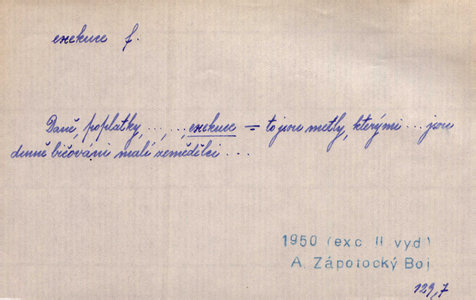 exekuce f.
Daně, poplatky, ..., ..., exekuce = to jsou metly, kterými ... jsou
denně bičováni malí zemědělci ...
1950 (exc II. vyd)
A. Zápotocký Boj
129,7